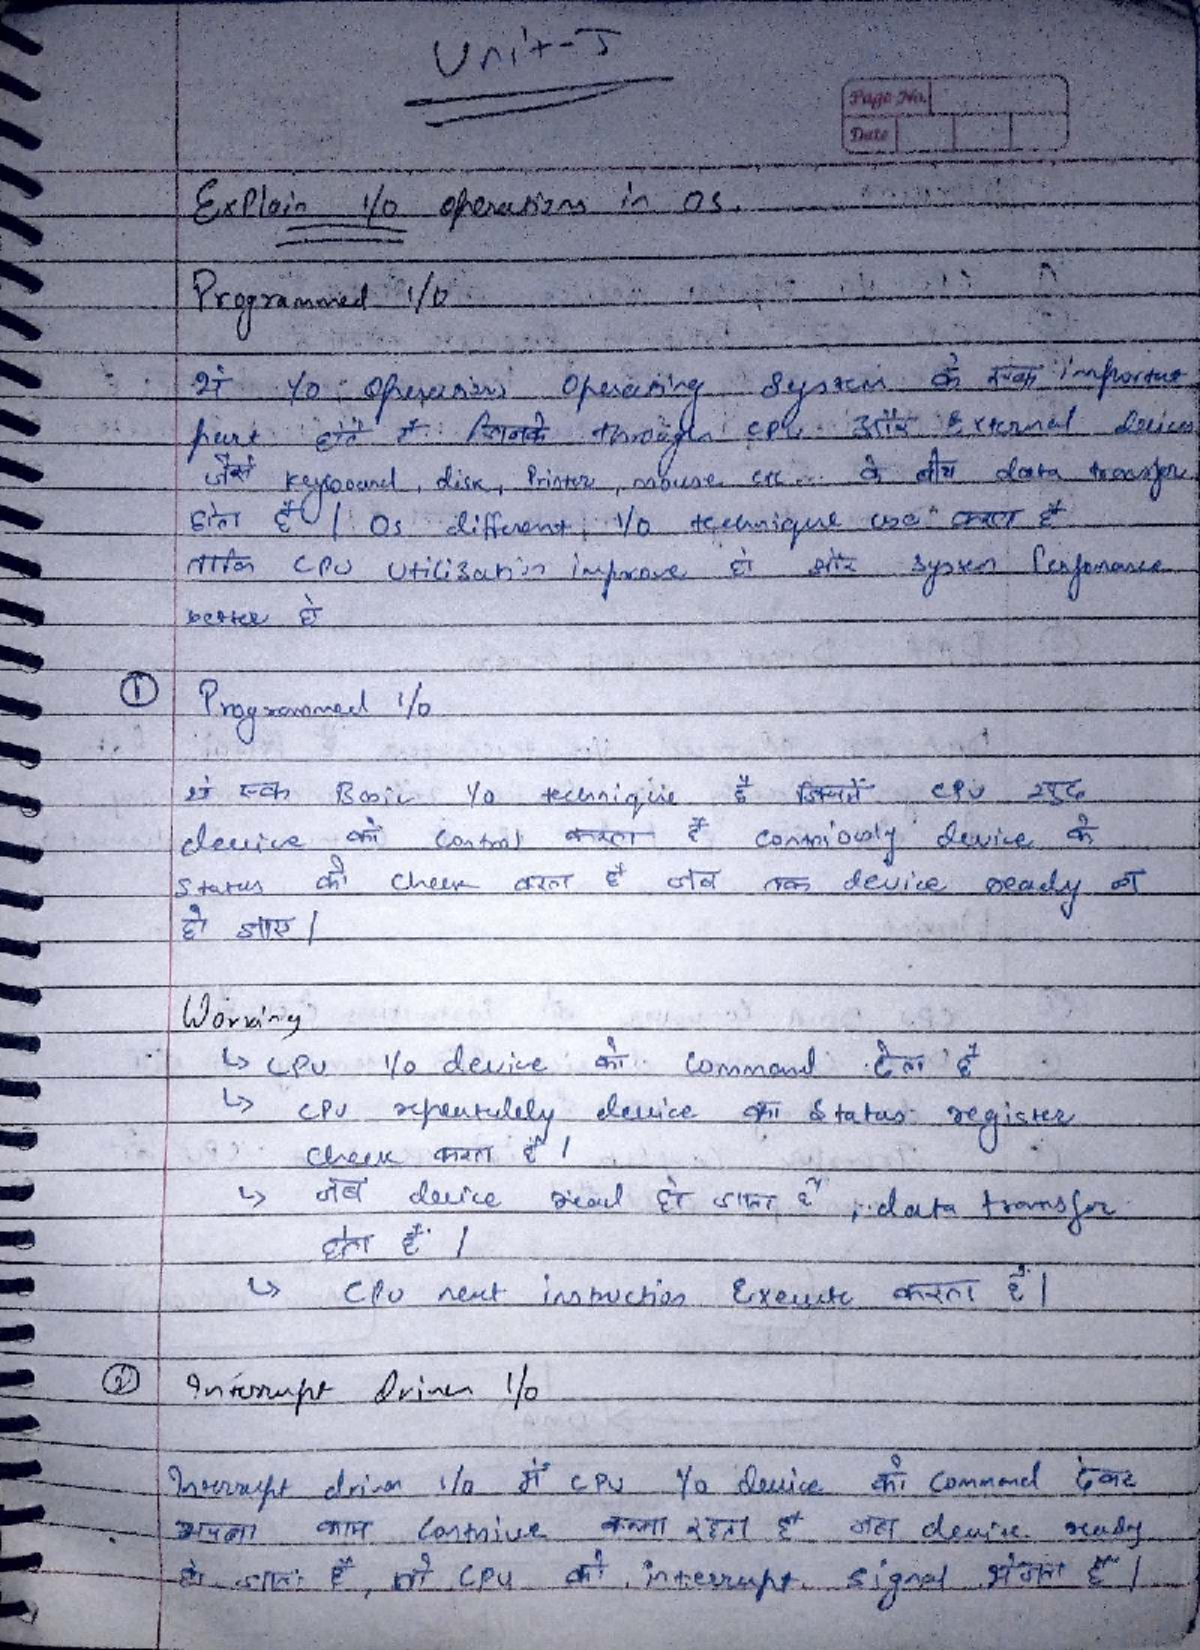 Unit-I
Page No.
Date
Explain I/O operations in OS.
Programmed I/O
ये I/O operations operating System के एक important
part होते हैं जिनके through CPU और External devices
जैसे keyboard, disk, Printer, mouse etc... के बीच data transfer
होता है | OS different I/O technique use करता है
ताकि CPU utilization improve हो और System Performance
better हो
① Programmed I/O
ये एक Basic I/O technique है जिसमें CPU खुद
device को control करता है continously device के
Status को check करता है जब तक device ready न
हो जाए |
Working
↳ CPU I/O device को command देता है
↳ CPU repeatedely device का status register
check करता है |
↳ जब device read हो जाता है, data transfor
होता है |
↳ CPU next instruction Execute करता है |
② Interrupt Driven I/O
Interrupt driven I/O में CPU I/O device को command देकर
अपना काम continue करता रहता है जब device ready
हो जाता है, तो CPU को interrupt signal भेजता है |